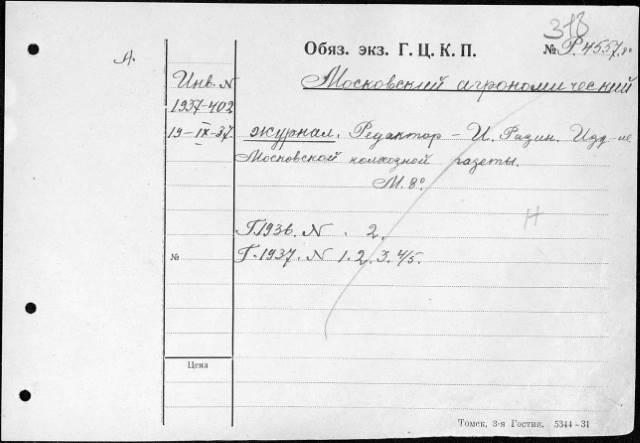 313
А.
Обяз. экз. Г. Ц. К. П.
№ Р.4557.8°
Инв. N
1937-402
19-IX-37.
Московский агрономический
журнал. Редактор - И. Разин. Изд-ие
Московской колхозной газеты.
М. 8°
Н
Г.1936. N . 2.
№
Г.1937. N 1. 2. 3. 4/5.
Цена
Томск, 3-я Гостип. 5344-31